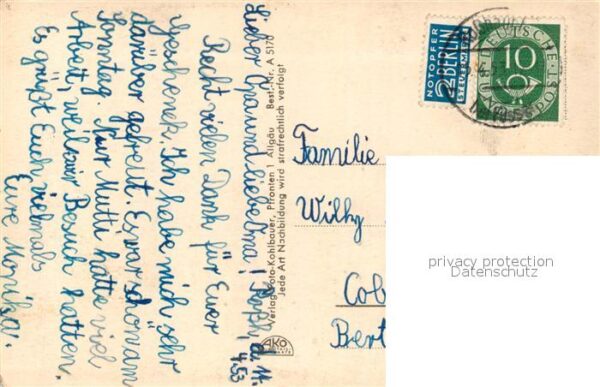 Lieber Opa und liebe Oma!
d. 14.
4.53
Recht vielen Dank für Euer
Geschenk. Ich habe mich sehr
darüber gefreut. Es war schon am
Sonntag. Nur Mutti hatte viel
Arbeit, weil wir Besuch hatten.
Es grüßt Euch vielmals
Eure Monika.
Verlag Foto-Kohlbauer, Pfronten 1 Allgäu Best.-Nr. A 5170
Jede Art Nachbildung wird strafrechtlich verfolgt
AKO
NOTOPFER
2 BERLIN
STEUERMARKE
DEUTSCHE
10
Familie
Willy
Cob
Bert
privacy protection
Datenschutz